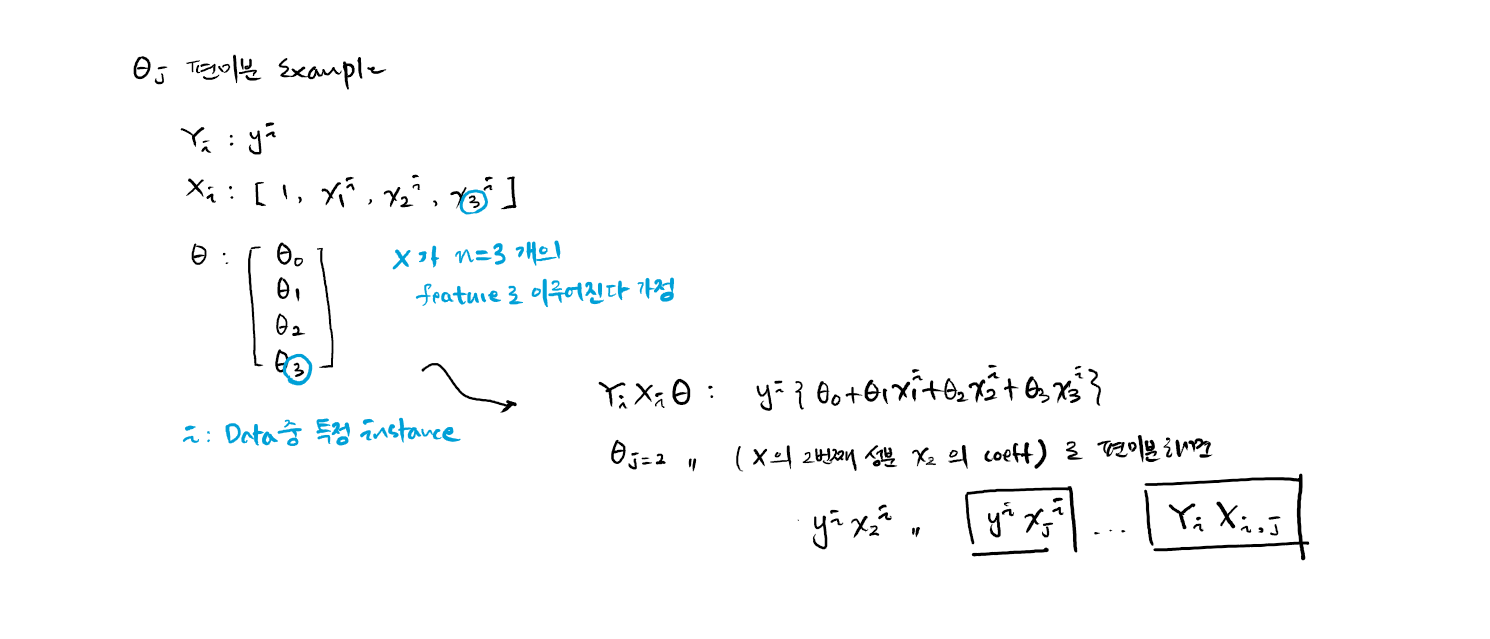 θⱼ 편미분 Example
Yᵢ : yⁱ
Xᵢ : [ 1, x₁ⁱ, x₂ⁱ, x₃ⁱ ]
θ : [ θ₀
θ₁
θ₂
θ₃ ]
X가 n=3 개의
feature로 이루어진다 가정
i : Data 중 특정 instance
YᵢXᵢθ : yⁱ { θ₀+θ₁x₁ⁱ+θ₂x₂ⁱ+θ₃x₃ⁱ }
θⱼ₌₂ 〃 (X의 2번째 성분 x₂의 coeff)로 편미분하면
yⁱx₂ⁱ 〃 yⁱxⱼⁱ ... YᵢXᵢ,ⱼ